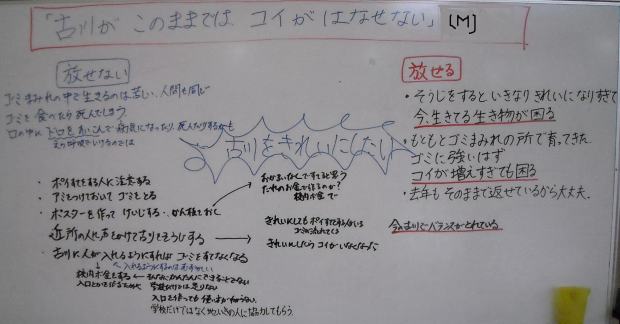 「古川が このままでは、コイが はなせない」 (M)
放せない
ゴミまみれの中で生きるのは苦しい、人間も同じ
ゴミを食べたり死んでしまう
口の中にドロを
病気になったり、死んだりするかも
古川をきれいにしたい
・ポイすてする人に注意する
・アミをつけておいて ゴミをとる
・ポスターを作って けいじする・かん板をおく
近所の人に声をかけて古川をそうじする
・古川に人が入れるようにすれば ゴミをすてなくなる
入れるようにするのはむずかしい
校内ボ金をする ← そんなにかんたんにできることでない
学校だけでは足りない
入口を作っても
学校だけではなく地いきの人に協力してもらう。
だれのお金で作るのか?
校内ボ金で
きれいにしても ポイすてする人がいる
ゴミは流れてくる
きれいにしたら コイがいなくなった
放せる
・そうじをすると いきなり きれいになりすぎて
今、生きてる生き物が困る
・もともとゴミまみれの所で育ってきた。
ゴミに強いはず
コイが増えすぎても困る
・去年も そのままで返せているから大丈夫。
今の古川でバランスがとれている